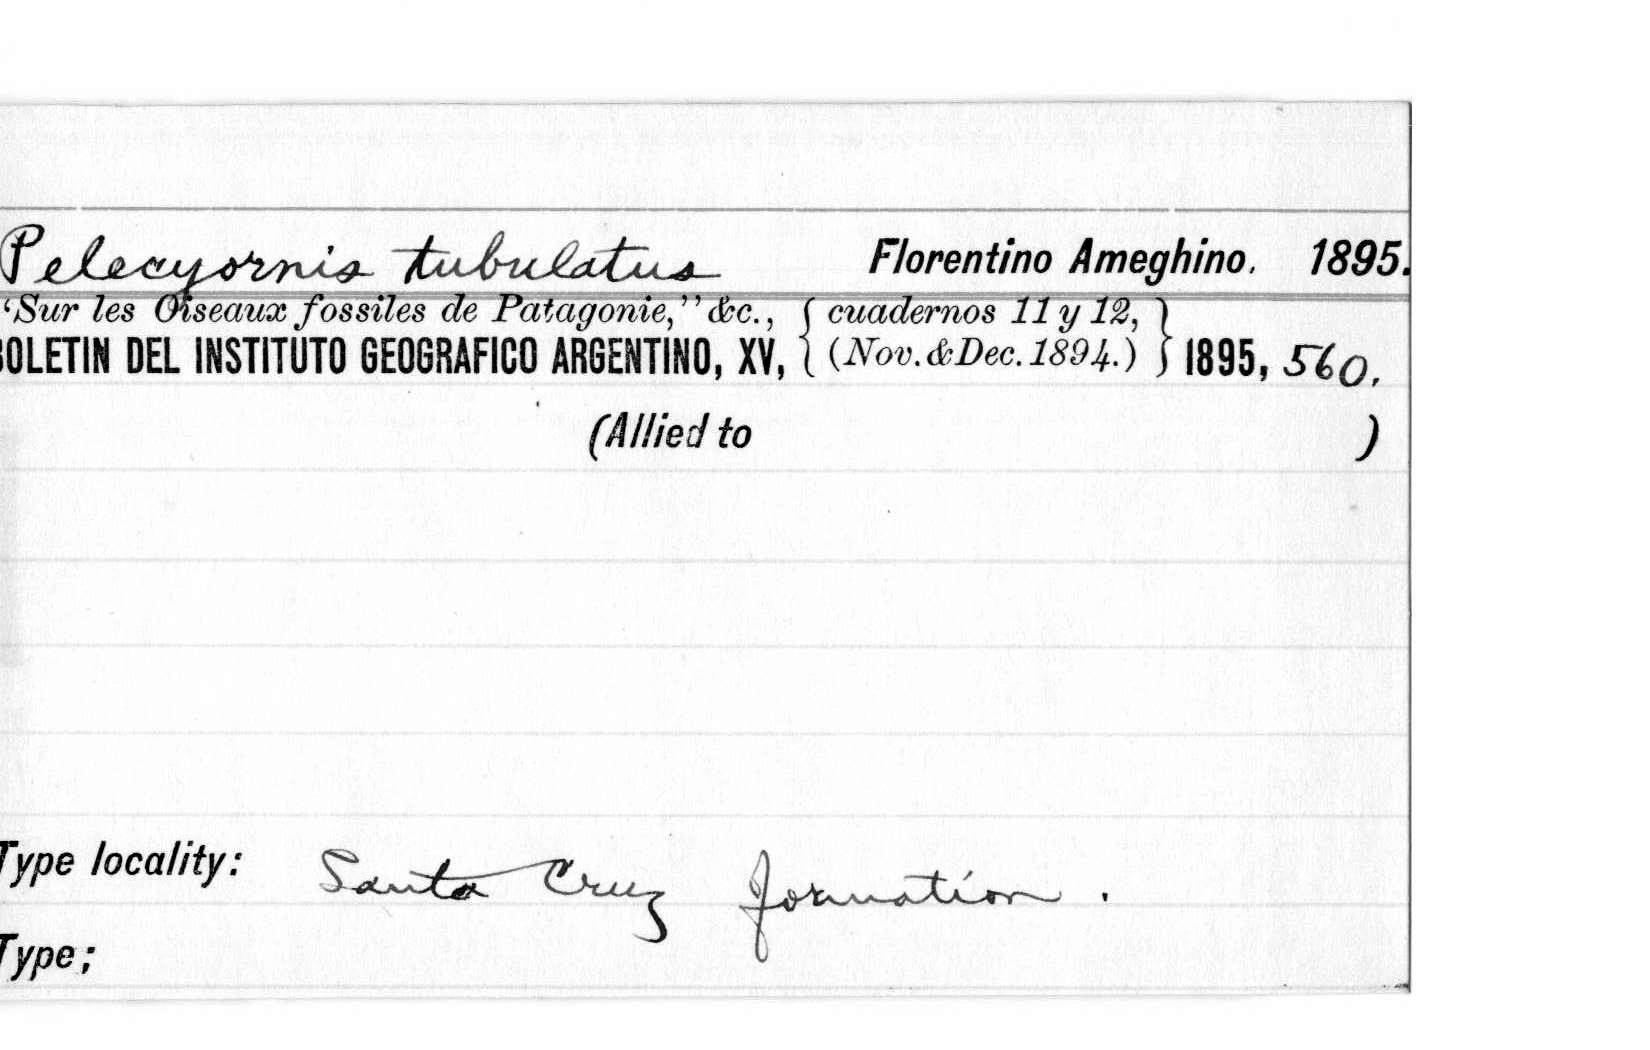 Pelecyornis tubulatus Florentino Ameghino. 1895.
“Sur les Oiseaux fossiles de Patagonie,” &c., { cuadernos 11 y 12, }
BOLETIN DEL INSTITUTO GEOGRAFICO ARGENTINO, XV, { (Nov. & Dec. 1894.) } 1895, 560.
(Allied to )
Type locality: Santa Cruz formation.
Type;